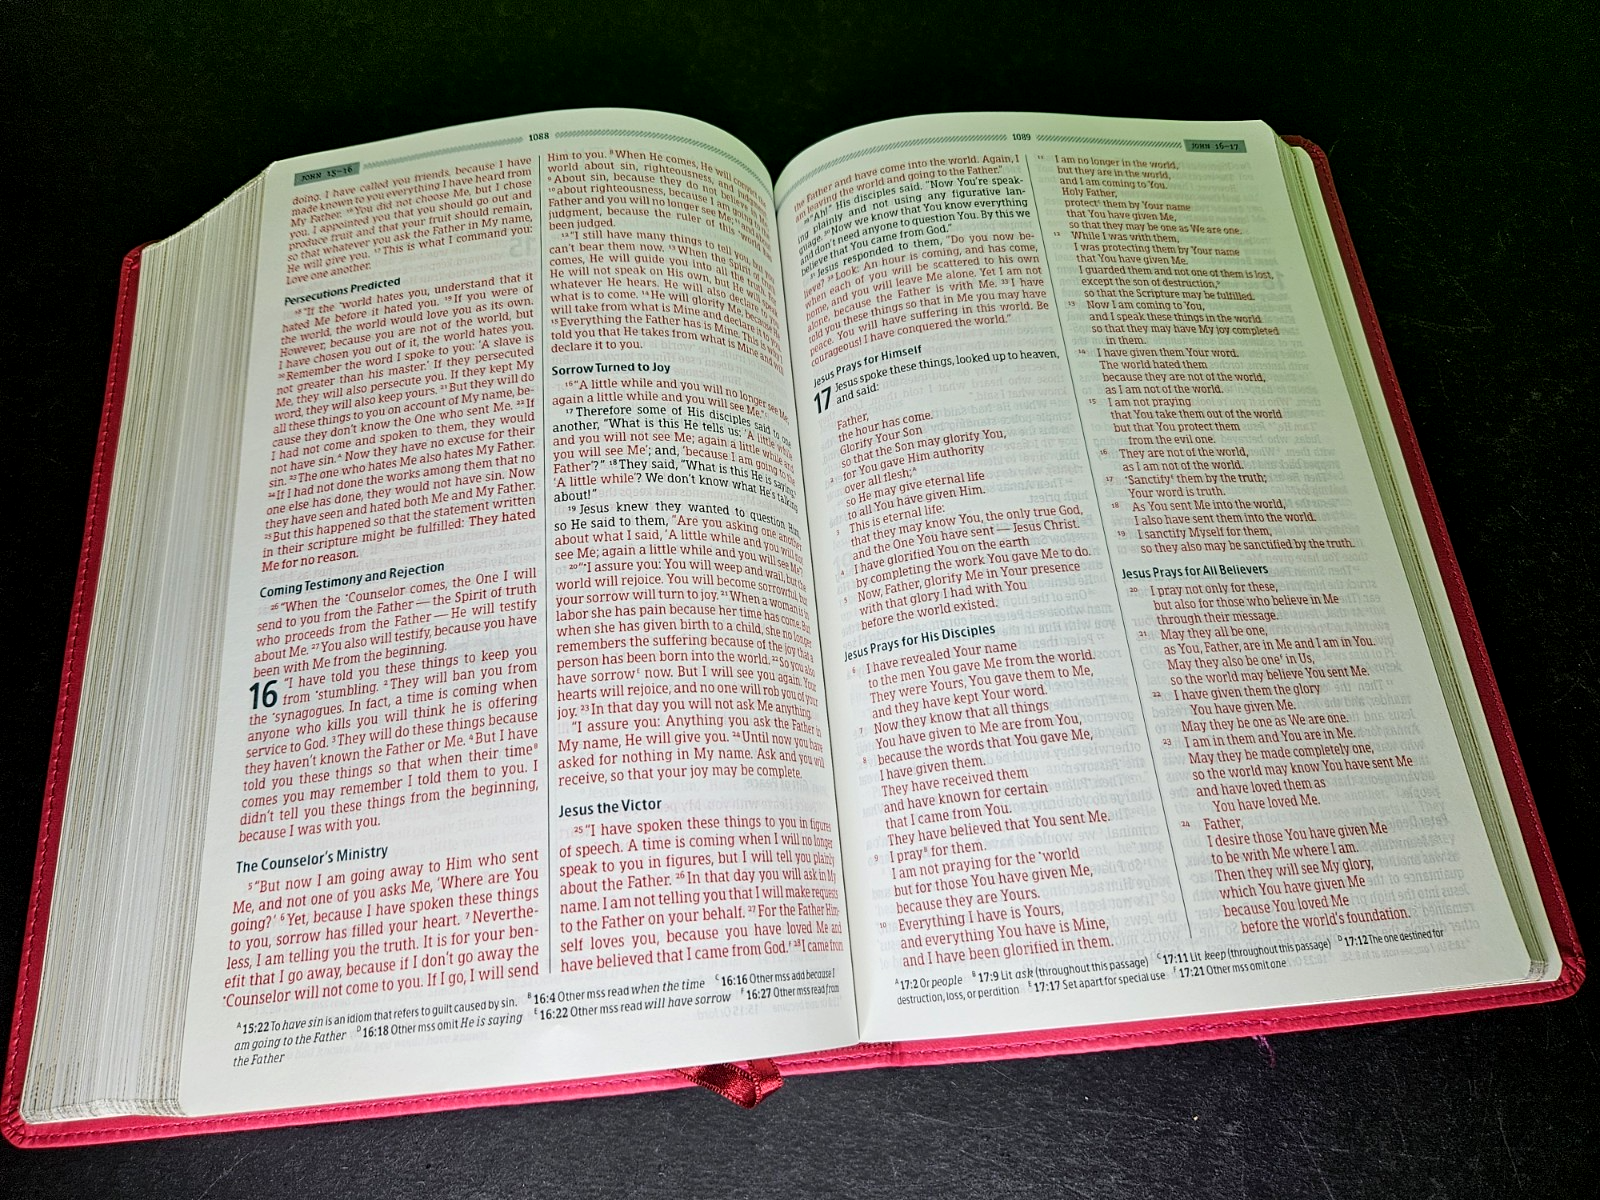 JOHN 15–16
1088
doing. I have called you friends, because I have
made known to you everything I have heard from
My Father. 16 You did not choose Me, but I chose
you. I appointed you that you should go out and
produce fruit and that your fruit should remain,
so that whatever you ask the Father in My name,
He will give you. 17 This is what I command you:
Love one another.
Persecutions Predicted
18 "If the *world hates you, understand that it
hated Me before it hated you. 19 If you were of
the world, the world would love you as its own.
However, because you are not of the world, but
I have chosen you out of it, the world hates you.
20 Remember the word I spoke to you: 'A slave is
not greater than his master.' If they persecuted
Me, they will also persecute you. If they kept My
word, they will also keep yours. 21 But they will do
all these things to you on account of My name, be-
cause they don't know the One who sent Me. 22 If
I had not come and spoken to them, they would
not have sin.A Now they have no excuse for their
sin. 23 The one who hates Me also hates My Father.
24 If I had not done the works among them that no
one else has done, they would not have sin. Now
they have seen and hated both Me and My Father.
25 But this happened so that the statement written
in their scripture might be fulfilled: They hated
Me for no reason.
Coming Testimony and Rejection
26 "When the *Counselor comes, the One I will
send to you from the Father — the Spirit of truth
who proceeds from the Father — He will testify
about Me. 27 You also will testify, because you have
been with Me from the beginning.
16 "I have told you these things to keep you
from *stumbling. 2 They will ban you from
the *synagogues. In fact, a time is coming when
anyone who kills you will think he is offering
service to God. 3 They will do these things because
they haven't known the Father or Me. 4 But I have
told you these things so that when their timeB
comes you may remember I told them to you. I
didn't tell you these things from the beginning,
because I was with you.
The Counselor's Ministry
5 "But now I am going away to Him who sent
Me, and not one of you asks Me, 'Where are You
going?' 6 Yet, because I have spoken these things
to you, sorrow has filled your heart. 7 Neverthe-
less, I am telling you the truth. It is for your ben-
efit that I go away, because if I don't go away the
*Counselor will not come to you. If I go, I will send
Him to you. 8 When He comes, He will convict
world about sin, righteousness, and judgment:
9 About sin, because they do not believe in
10 about righteousness, because I am going to the
Father and you will no longer see Me; 11 and about
judgment, because the ruler of this *world has
been judged.
12 "I still have many things to tell you, but you
can't bear them now. 13 When the Spirit of truth
comes, He will guide you into all the truth. For
He will not speak on His own, but He will speak
whatever He hears. He will also declare to you
what is to come. 14 He will glorify Me, because He
will take from what is Mine and declare it to you.
15 Everything the Father has is Mine. This is why I
told you that He takes from what is Mine and will
declare it to you.
Sorrow Turned to Joy
16 "A little while and you will no longer see Me;
again a little while and you will see Me."
17 Therefore some of His disciples said to one
another, "What is this He tells us: 'A little while
and you will not see Me; again a little while and
you will see Me'; and, 'because I am going to the
Father'?" 18 They said, "What is this He is saying,
'A little while'? We don't know what He's talking
about!"
19 Jesus knew they wanted to question Him,
so He said to them, "Are you asking one another
about what I said, 'A little while and you will not
see Me; again a little while and you will see Me'?
20 "I assure you: You will weep and wail, but the
world will rejoice. You will become sorrowful, but
your sorrow will turn to joy. 21 When a woman is in
labor she has pain because her time has come. But
when she has given birth to a child, she no longer
remembers the suffering because of the joy that a
person has been born into the world. 22 So you also
have sorrowE now. But I will see you again. Your
hearts will rejoice, and no one will rob you of your
joy. 23 In that day you will not ask Me anything.
"I assure you: Anything you ask the Father in
My name, He will give you. 24 Until now you have
asked for nothing in My name. Ask and you will
receive, so that your joy may be complete.
Jesus the Victor
25 "I have spoken these things to you in figures
of speech. A time is coming when I will no longer
speak to you in figures, but I will tell you plainly
about the Father. 26 In that day you will ask in My
name. I am not telling you that I will make requests
to the Father on your behalf. 27 For the Father Him-
self loves you, because you have loved Me and
have believed that I came from God.F 28 I came from
A 15:22 To have sin is an idiom that refers to guilt caused by sin. B 16:4 Other mss read when the time C 16:16 Other mss add because I
am going to the Father D 16:18 Other mss omit He is saying E 16:22 Other mss read will have sorrow F 16:27 Other mss read from
the Father
1089
JOHN 16–17
the Father and have come into the world. Again, I
am leaving the world and going to the Father."
29 "Ah!" His disciples said. "Now You're speak-
ing plainly and not using any figurative lan-
guage. 30 Now we know that You know everything
and don't need anyone to question You. By this we
believe that You came from God."
31 Jesus responded to them, "Do you now be-
lieve? 32 Look: An hour is coming, and has come,
when each of you will be scattered to his own
home, and you will leave Me alone. Yet I am not
alone, because the Father is with Me. 33 I have
told you these things so that in Me you may have
peace. You will have suffering in this world. Be
courageous! I have conquered the world."
Jesus Prays for Himself
17 Jesus spoke these things, looked up to heaven,
and said:
Father,
the hour has come.
Glorify Your Son
so that the Son may glorify You,
2 for You gave Him authority
over all flesh;A
so He may give eternal life
to all You have given Him.
3 This is eternal life:
that they may know You, the only true God,
and the One You have sent — Jesus Christ.
4 I have glorified You on the earth
by completing the work You gave Me to do.
5 Now, Father, glorify Me in Your presence
with that glory I had with You
before the world existed.
Jesus Prays for His Disciples
6 I have revealed Your name
to the men You gave Me from the world.
They were Yours, You gave them to Me,
and they have kept Your word.
7 Now they know that all things
You have given to Me are from You,
8 because the words that You gave Me,
I have given them.
They have received them
and have known for certain
that I came from You.
They have believed that You sent Me.
9 I prayB for them.
I am not praying for the *world
but for those You have given Me,
because they are Yours.
10 Everything I have is Yours,
and everything You have is Mine,
and I have been glorified in them.
11 I am no longer in the world,
but they are in the world,
and I am coming to You.
Holy Father,
protectC them by Your name
that You have given Me,
so that they may be one as We are one.
12 While I was with them,
I was protecting them by Your name
that You have given Me.
I guarded them and not one of them is lost,
except the son of destruction,D
so that the Scripture may be fulfilled.
13 Now I am coming to You,
and I speak these things in the world
so that they may have My joy completed
in them.
14 I have given them Your word.
The world hated them
because they are not of the world,
as I am not of the world.
15 I am not praying
that You take them out of the world
but that You protect them
from the evil one.
16 They are not of the world,
as I am not of the world.
17 *SanctifyE them by the truth;
Your word is truth.
18 As You sent Me into the world,
I also have sent them into the world.
19 I sanctify Myself for them,
so they also may be sanctified by the truth.
Jesus Prays for All Believers
20 I pray not only for these,
but also for those who believe in Me
through their message.
21 May they all be one,
as You, Father, are in Me and I am in You.
May they also be oneF in Us,
so the world may believe You sent Me.
22 I have given them the glory
You have given Me.
May they be one as We are one.
23 I am in them and You are in Me.
May they be made completely one,
so the world may know You have sent Me
and have loved them as
You have loved Me.
24 Father,
I desire those You have given Me
to be with Me where I am.
Then they will see My glory,
which You have given Me
because You loved Me
before the world's foundation.
A 17:2 Or people B 17:9 Lit ask (throughout this passage) C 17:11 Lit keep (throughout this passage) D 17:12 The one destined for
destruction, loss, or perdition E 17:17 Set apart for special use F 17:21 Other mss omit one